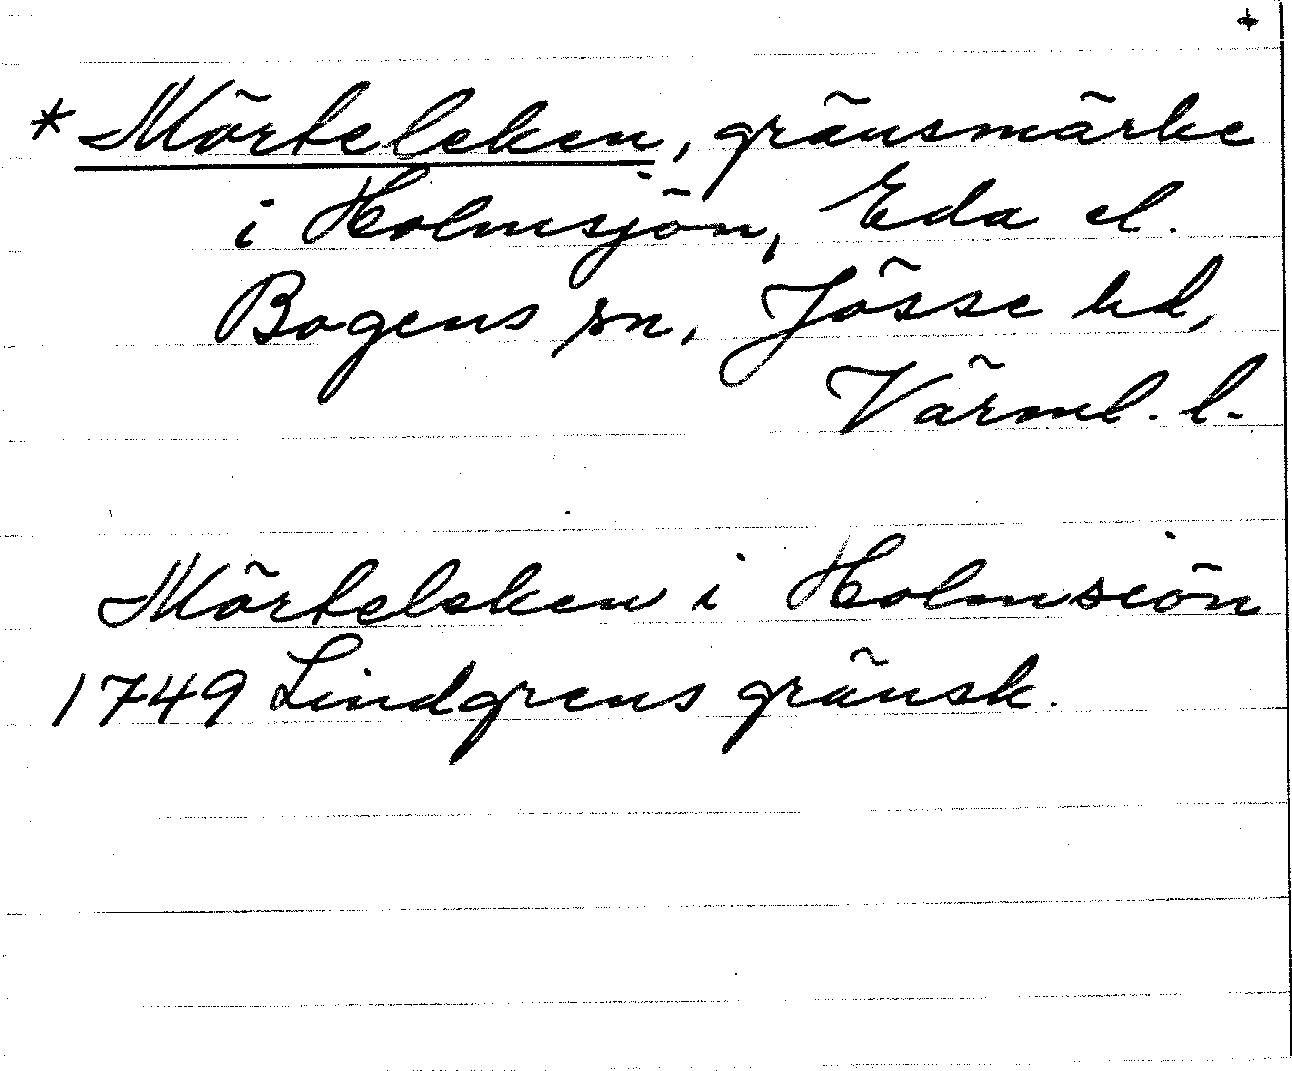 +
*Mörteleken, gränsmärke
i Holmsjön, Eda el.
Bogens sn, Jösse hd,
Värml. l.
Mörteleken i Holmsiön
1749 Lindgrens gränsk.